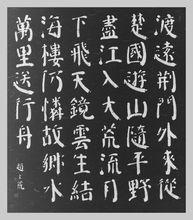 渡遠荊門外來從
楚國遊山隨平野
盡江入大荒流月
下飛天鏡雲生結
海樓仍憐故鄉水
萬里送行舟